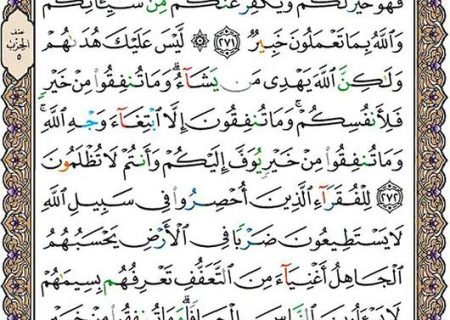 فَهُوَ خَيْرٌ لَكُمْ وَيُكَفِّرُ عَنكُم مِّن سَيِّـَٔاتِكُمْ
وَاللَّهُ بِمَا تَعْمَلُونَ خَبِيرٌ ﴿٢٧١﴾ ۞ لَيْسَ عَلَيْكَ هُدَىٰهُمْ
وَلَٰكِنَّ اللَّهَ يَهْدِى مَن يَشَآءُ ۗ وَمَا تُنفِقُوا مِنْ خَيْرٍ
فَلِأَنفُسِكُمْ ۚ وَمَا تُنفِقُونَ إِلَّا ابْتِغَآءَ وَجْهِ اللَّهِ ۚ
وَمَا تُنفِقُوا مِنْ خَيْرٍ يُوَفَّ إِلَيْكُمْ وَأَنتُمْ لَا تُظْلَمُونَ
﴿٢٧٢﴾ لِلْفُقَرَآءِ الَّذِينَ أُحْصِرُوا فِى سَبِيلِ اللَّهِ
لَا يَسْتَطِيعُونَ ضَرْبًا فِى الْأَرْضِ يَحْسَبُهُمُ
الْجَاهِلُ أَغْنِيَآءَ مِنَ التَّعَفُّفِ تَعْرِفُهُم بِسِيمَٰهُمْ
لَا يَسْـَٔلُونَ النَّاسَ إِلْحَافًا ۗ وَمَا تُنفِقُوا مِنْ خَيْرٍ
الحزب
٥